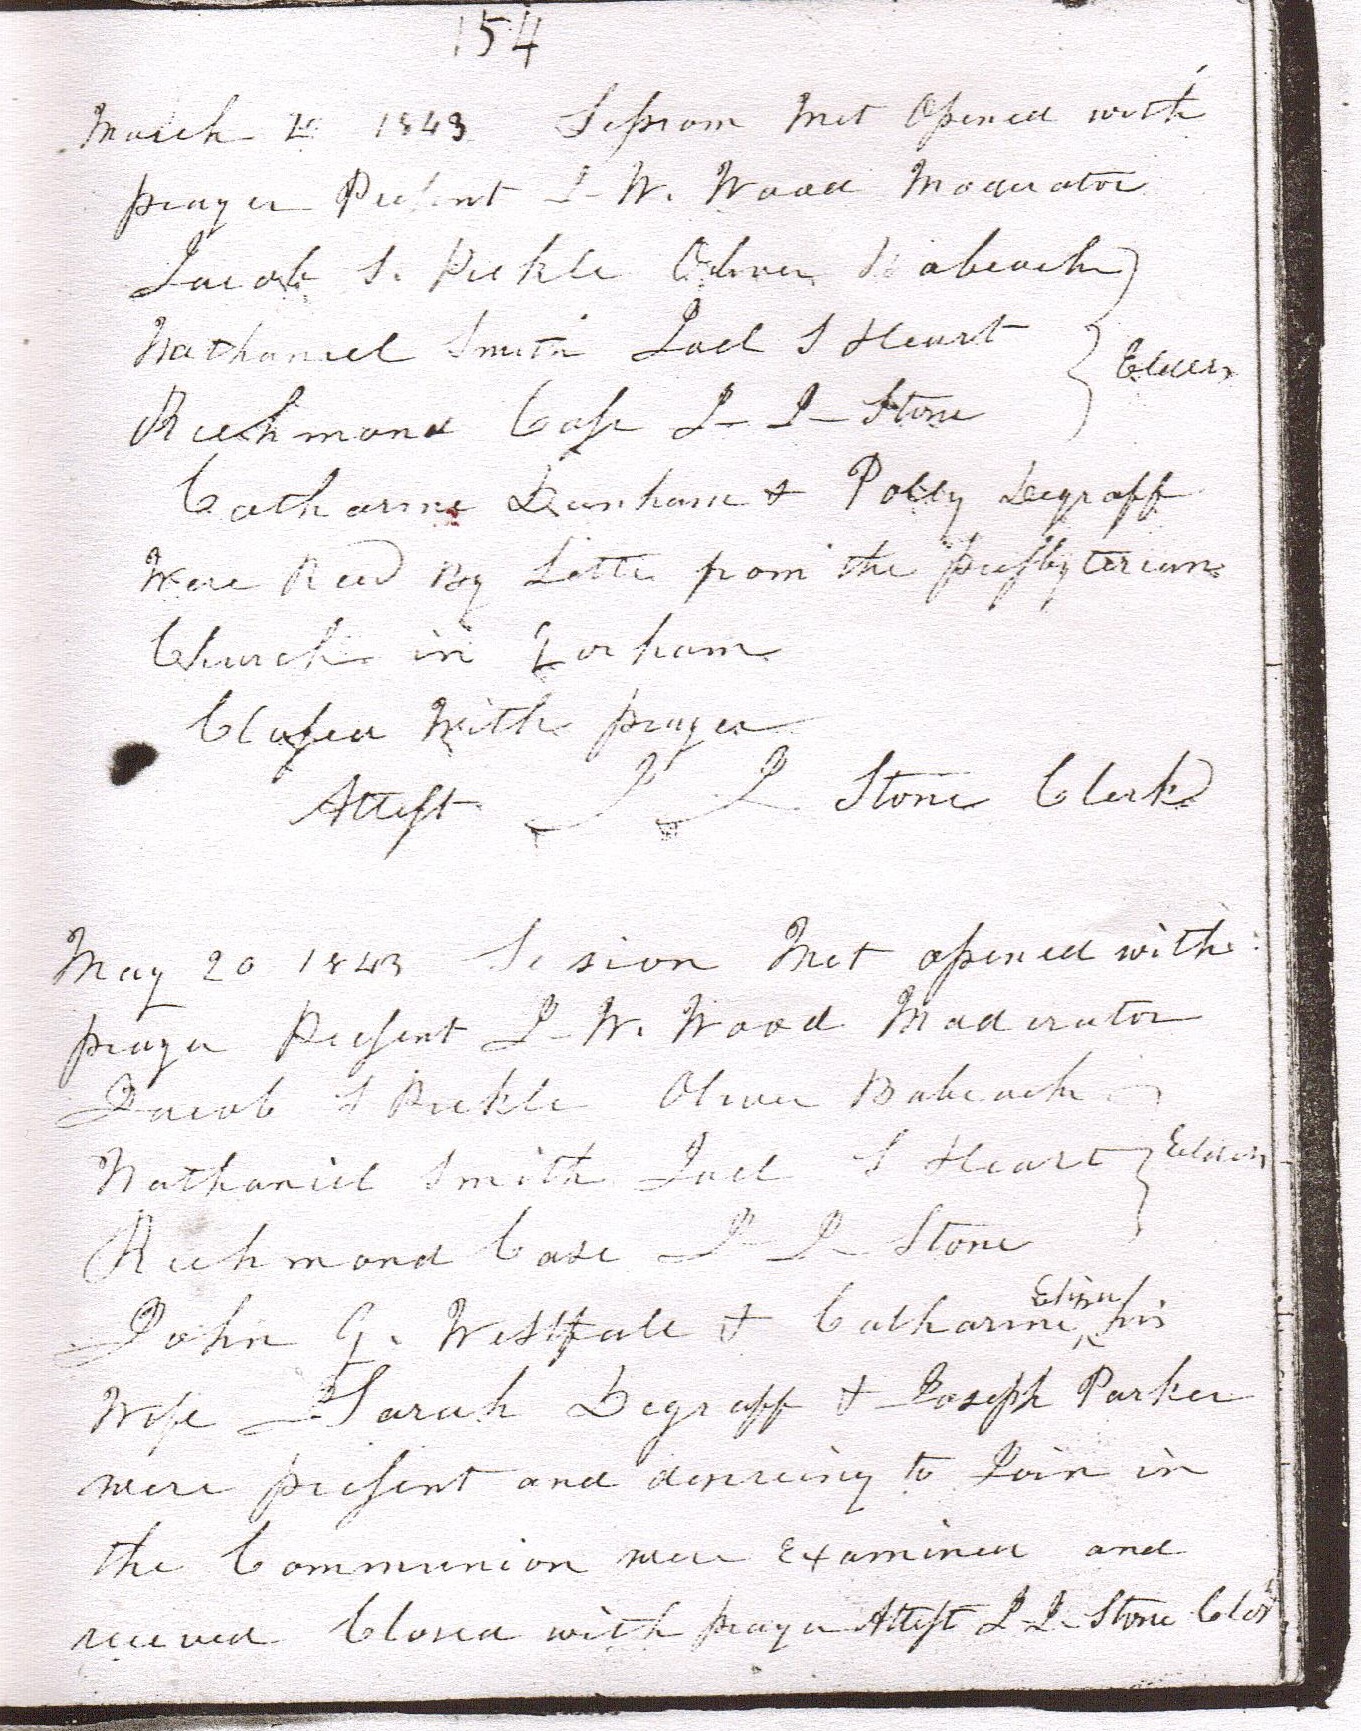 154
March 1843 Session Met Opened with
prayer Present J W. Wood Moderator
Jacob S. Pickle Oliver Babcock
Nathaniel Smith Joel S Heart
Elders
Richmond Case J J Stone
Catharine Dunham & Polly Degraff
Were Recd By Letter from the presbyterian
Church in Gorham
Closed With prayer
Attest J J Stone Clerk
May 20 1843 Sesion Met opened with
prayer Present J W. Wood Moderator
Jacob S Pickle Oliver Babcock
Nathaniel Smith Joel S Heart Elders
Richmond Case J J Stone
John G. Westfall & Catharine Eliza his
Wife Sarah Degraff & Joseph Parker
were present and desireing to Join in
the Communion were Examined and
received Closed with prayer Attest J J Stone Clerk